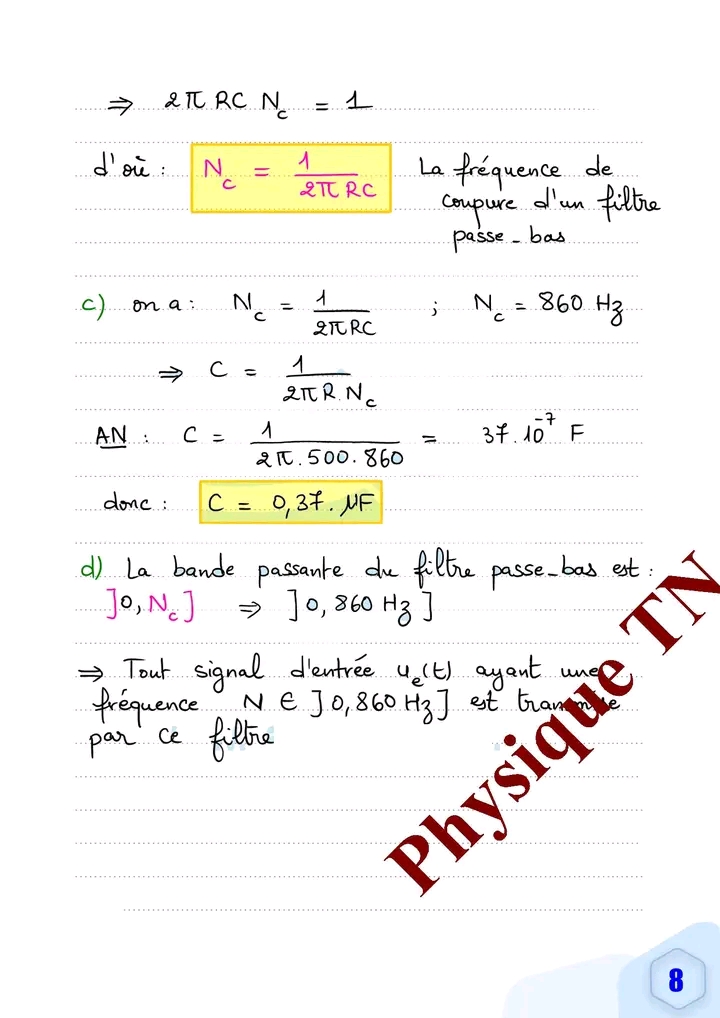 ⇒ 2π RC Nc = 1
d'où : Nc = 1/(2π RC) La fréquence de
coupure d'un filtre
passe-bas
c) on a : Nc = 1/(2π RC) ; Nc = 860 Hz
⇒ C = 1/(2π R. Nc)
AN : C = 1/(2π . 500 . 860) = 37.10⁻⁷ F
donc : C = 0,37. µF
d) La bande passante du filtre passe-bas est :
]0, Nc] ⇒ ]0, 860 Hz]
⇒ Tout signal d'entrée ue(t) ayant une
fréquence N ∈ ]0, 860 Hz] est
par ce filtre
Physique TN
8